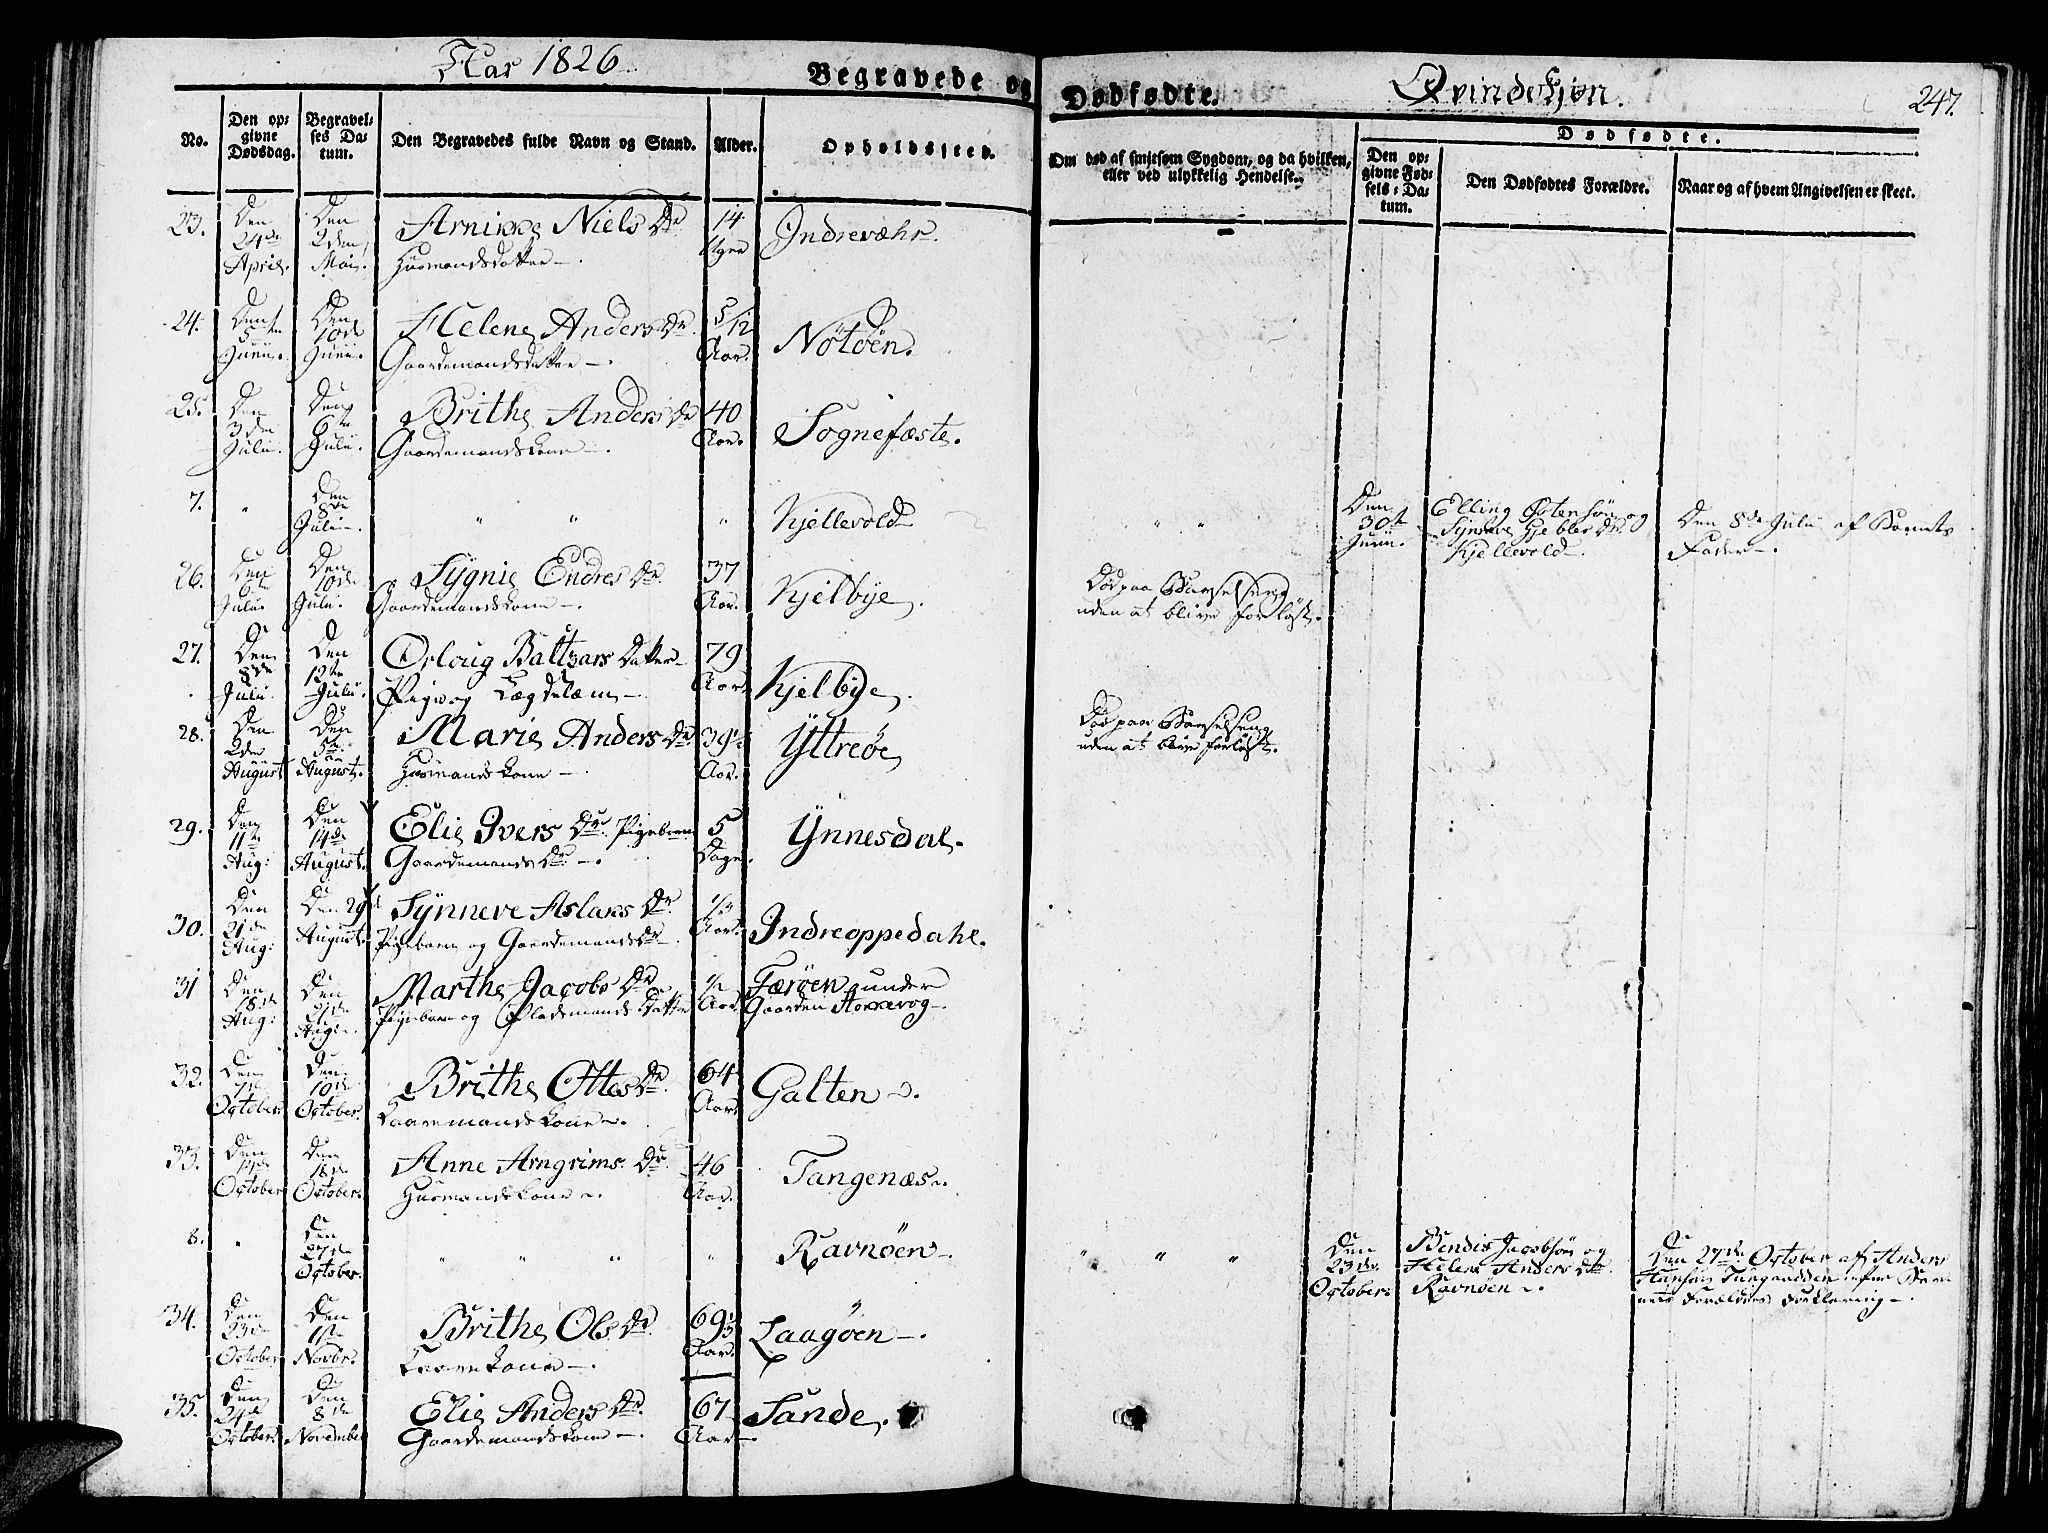 Aar 1826.
Begravede og Dødfødte.
Qvindekjøn.
247.
No.
Den opgivne Dødsdag.
Begravelses Datum.
Den Begravedes fulde Navn og Stand.
Alder.
Opholdssted.
Om død af smitsom Sygdom, og da hvilken,
eller ved ulykkelig Hendelse.
Dødfødte.
Den opgivne Fødsels-Datum.
Den Dødfødtes Forældre.
Naar og af hvem Angivelsen er skeet.
23. Den 24de April. Den 2den Mai. Arnikke Niels Dr 14 Uger Indrevæhr.
Huusmandsdatter.
24. Den 5te Junii. Den 10de Junii. Helene Anders Dr 5/12 Aar. Nötöen.
Gaardemandsdatter.
25. Den 3den Julii. Den 6te Julii. Brithe Anders Dr 40 Aar. Sognefæste.
Gaardemandskone.
7. " Den 8de Julii. " " " Kjellevold " " Den 30te Junii. Elling Ostensøn og
Synneve Gjebles Dr. Kjellevold. Den 8de Julii af Barnets
Fader.
26. Den 6te Julii. Den 10de Julii. Sygnie Endres Dr. 37 Aar. Kjelbye. Død paa Barselseng
Gaardemandskone. uden at blive forløst.
27. Den 8de Julii. Den 12te Julii. Orloug Baltzars Datter 79 Aar. Kjelbye.
Pige og Lægdslæm.
28. Den 2den August Den 5te August. Marie Anders Dr 39½ Aar. Yttreøe Død paa Barselseng
Huusmandskone uden at blive forløst.
29. Den 11te Aug: Den 14de August. Elie Ivers Dr. Pigebarn 5 Dage. Ynnesdal.
Gaardemands Dr.
30. Den 21de Aug: Den 29de August. Synneve Aslaks Dr. Aar. Indreoppedahl.
Pigebarn og Gaardemands Dr
31 Den 18de Aug: Den Aug: Marthe Jacobs Dr ½ Aar Færøen under
Pigebarn og Pladsmands Datter Gaarden Hokkevog
32. Den 7de October Den 10de October. Brithe Ottes Dr. 64 Aar Galten.
Kaaremandskone.
33. Den 14de October Den 18de October. Anne Arngrims Dr. 46 Aar. Tangenæs.
Huusmandskone.
8. " Den 27de October. " " " " Ravnøen. " " " Den 23de October. Bendix Jacobsøn og
Helene Anders Dtr. Ravnøen. Den 27de October af Anders
Hansøn Tungevddden efter Barnets Forældres Forklaring.
34. Den 23de October Den 1ste Novbr. Brithe Ols Dr. 69⅓ Aar. Laagøen.
Kaarekone.
35. Den 24de October. Den 8de November Elie Anders Dr. 67 Aar Sande.
Gaardemandskone.